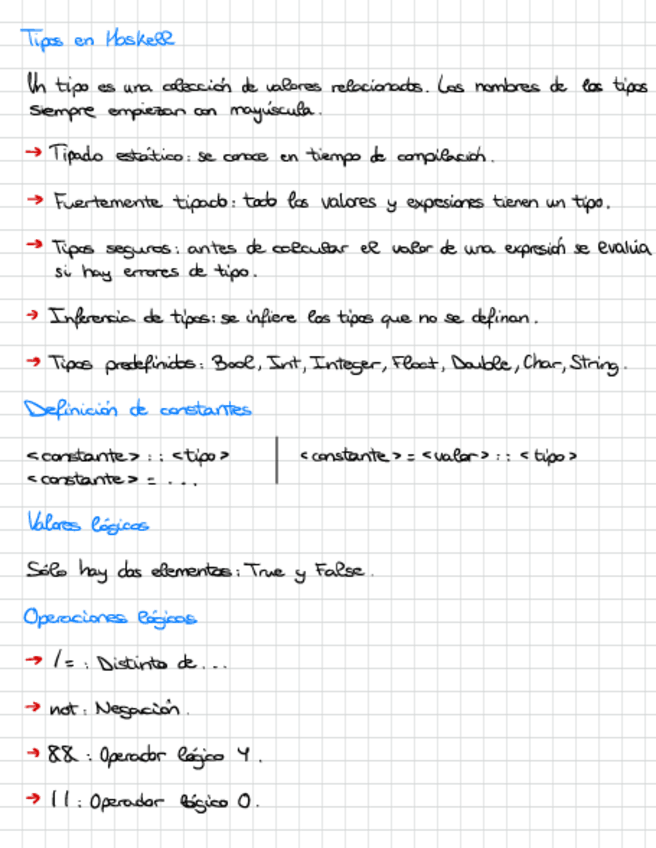 Tipos en Haskell
Un tipo es una colección de valores relacionados. Los nombres de los tipos
siempre empiezan con mayúscula.
→ Tipado estático: se conoce en tiempo de compilación.
→ Fuertemente tipado: todo los valores y expesiones tienen un tipo.
→ Tipos seguros: antes de calcular el valor de una expresión se evalúa
si hay errores de tipo.
→ Inferencia de tipos: se infiere los tipos que no se definan.
→ Tipos predefinidos: Bool, Int, Integer, Float, Double, Char, String.
Definición de constantes
<constante> :: <tipo> | <constante> = <valor> :: <tipo>
<constante> = ...
Valores lógicos
Sólo hay dos elementos: True y False.
Operaciones lógicas
→ /= : Distinto de...
→ not: Negación.
→ && : Operador lógico Y.
→ || : Operador lógico O.